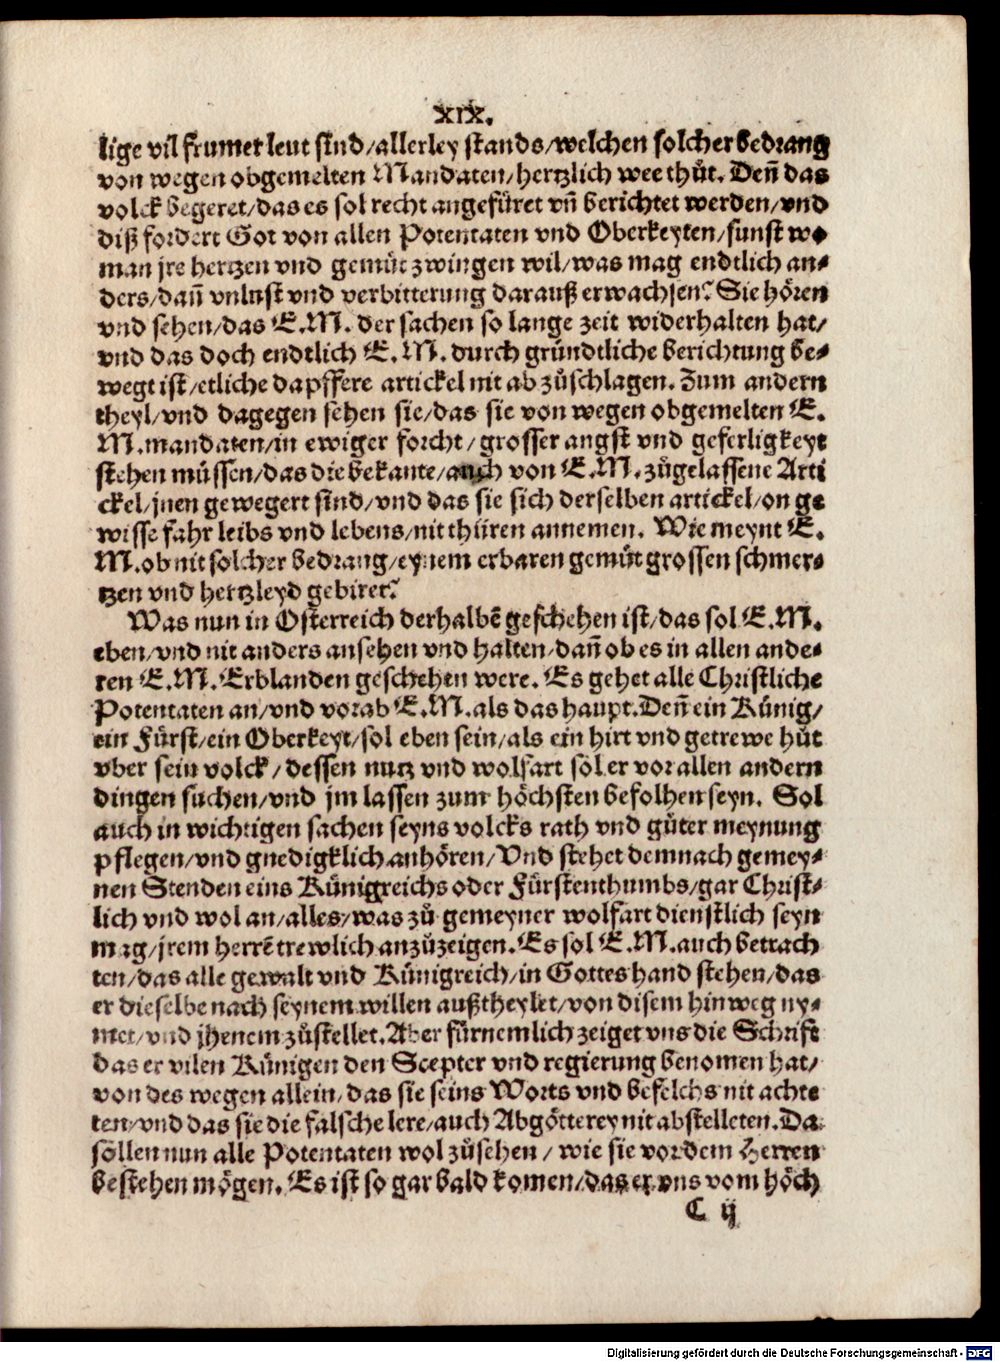 XIX.
lige vil frumer leut sind/allerley stands/welchen solcher bedrang
von wegen obgemelten Mandaten/hertzlich wee thůt. Deñ das
volck begeret/das es sol recht angefüret vñ berichtet werden/vnd
diß fordert Got von allen Potentaten vnd Oberkeyten/sunst wo
man jre hertzen vnd gemüt zwingen wil/was mag endtlich an-
ders/dañ vnlust vnd verbitterung darauß erwachsen? Sie hören
vnd sehen/das E.M. der sachen so lange zeit widerhalten hat/
vnd das doch endtlich E.M. durch gründtliche berichtung be-
wegt ist/etliche dapffere artickel nit abzůschlagen. Zum andern
theyl/vnd dagegen sehen sie/das sie von wegen obgemelten E.
M.mandaten/in ewiger forcht/grosser angst vnd geferligkeyt
stehen müssen/das die bekante/auch von E.M.zůgelassene Arti
ckel/jnen gewegert sind/vnd das sie sich derselben artickel/on ge
wisse fahr leibs vnd lebens/nit thüren annemen. Wie meynt E.
M.ob nit solcher bedrang/eynem erbaren gemüt grossen schmer-
tzen vnd hertzleyd gebirer?
Was nun in Osterreich derhalbē geschehen ist/das sol E.M.
eben/vnd nit anders ansehen vnd halten/dañ ob es in allen ande-
ren E.M.Erblanden geschehen were. Es gehet alle Christliche
Potentaten an/vnd vorab E.M.als das haupt.Deñ ein Künig/
ein Fürst/ein Oberkeyt/sol eben sein/als ein hirt vnd getrewe hüt
vber sein volck/dessen nutz vnd wolfart sol er vor allen andern
dingen suchen/vnd jm lassen zum höchsten befolhen seyn. Sol
auch in wichtigen sachen seyns volcks rath vnd gůter meynung
pflegen/vnd gnedigklich anhören/Vnd stehet demnach gemey-
nen Stenden eins Künigreichs oder Fürstenthumbs/gar Christ-
lich vnd wol an/alles/was zů gemeyner wolfart dienstlich seyn
mag/jrem herrē trewlich anzůzeigen.Es sol E.M.auch betrach
ten/das alle gewalt vnd Künigreich/in Gottes hand stehen/das
er dieselbe nach seynem willen außtheylet/von disem hinweg ny-
met/vnd jhenem zůstellet.Aber fürnemlich zeiget vns die Schrift
das er vilen Künigen den Scepter vnd regierung benomen hat/
von des wegen allein/das sie seins Worts vnd befelchs nit achte
ten/vnd das sie die falsche lere/auch Abgötterey nit abstelleten.Da
söllen nun alle Potentaten wol zůsehen/wie sie vor dem Herren
bestehen mögen.Es ist so gar bald komen/das er vns vom höch
C ij
Digitalisierung gefördert durch die Deutsche Forschungsgemeinschaft - DFG